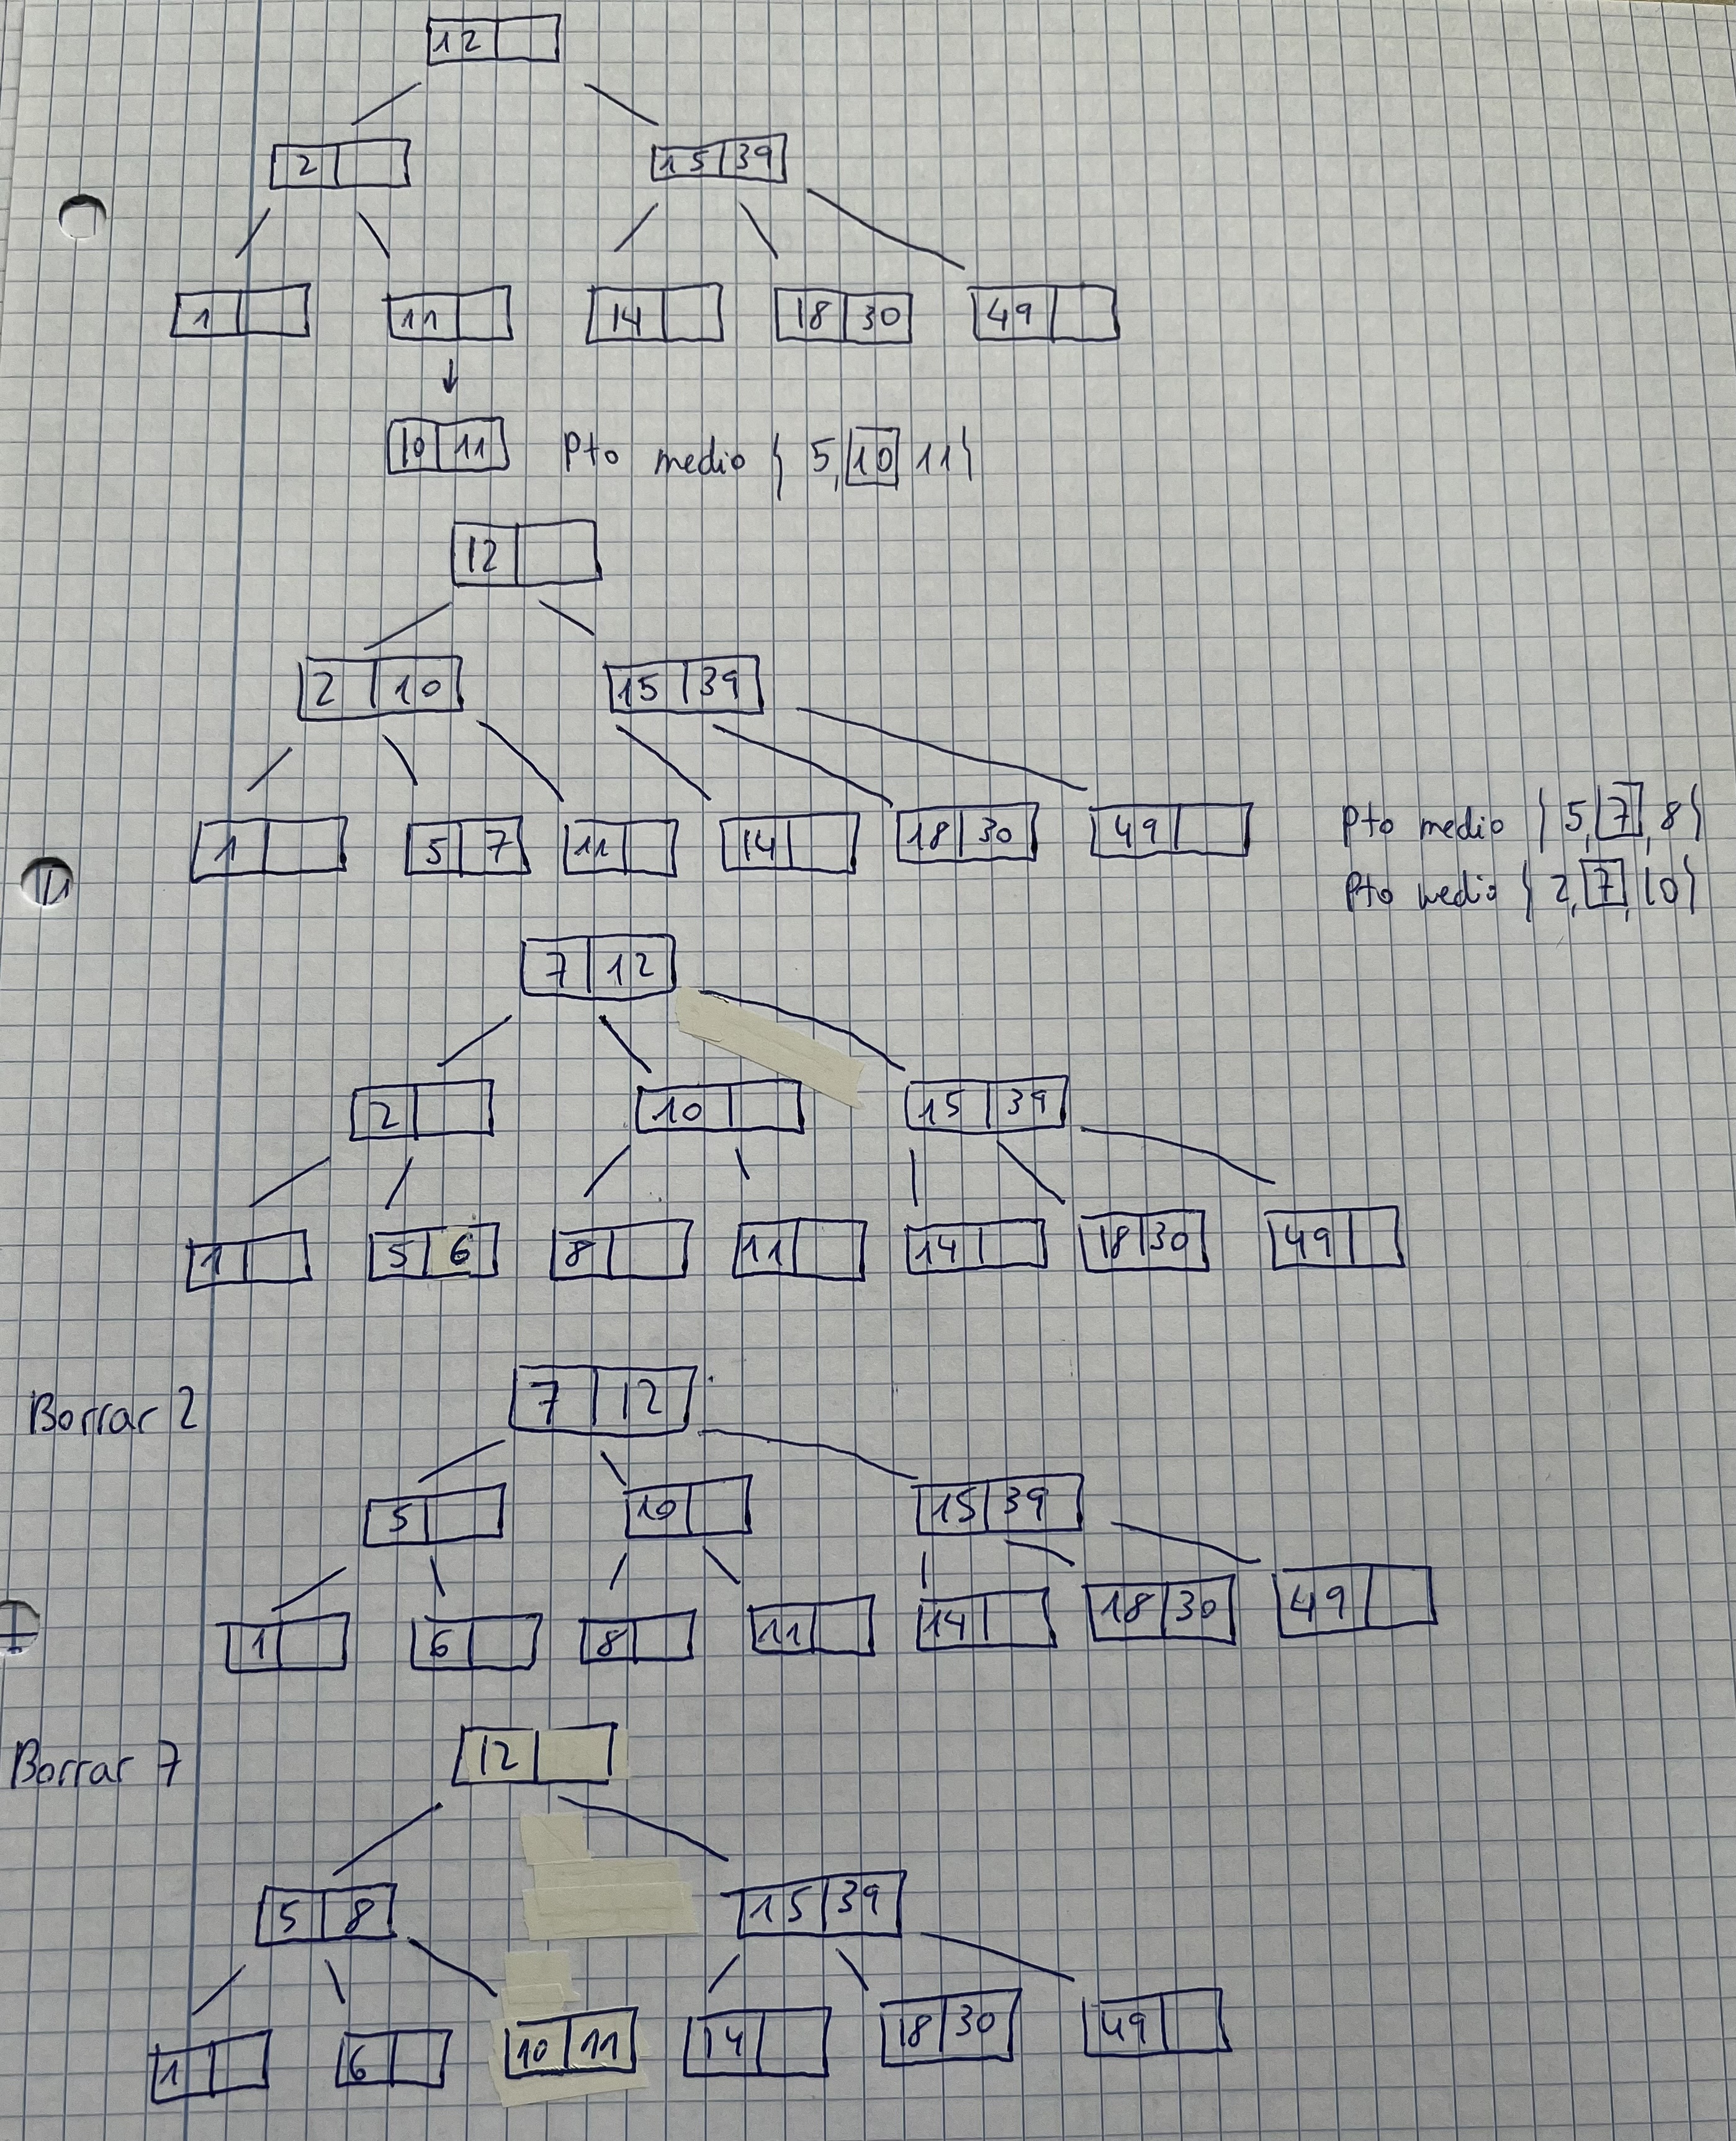 12
2 15 39
1 11 14 18 30 49
10 11 Pto medio { 5, 10 11}
12
2 10 15 39
1 5 7 11 14 18 30 49 Pto medio { 5, 7, 8}
Pto medio { 2, 7, 10}
7 12
2 10 15 39
1 5 6 8 11 14 18 30 49
Borrar 2 7 12
5 10 15 39
1 6 8 11 14 18 30 49
Borrar 7 12
5 8 15 39
1 6 10 11 14 18 30 49